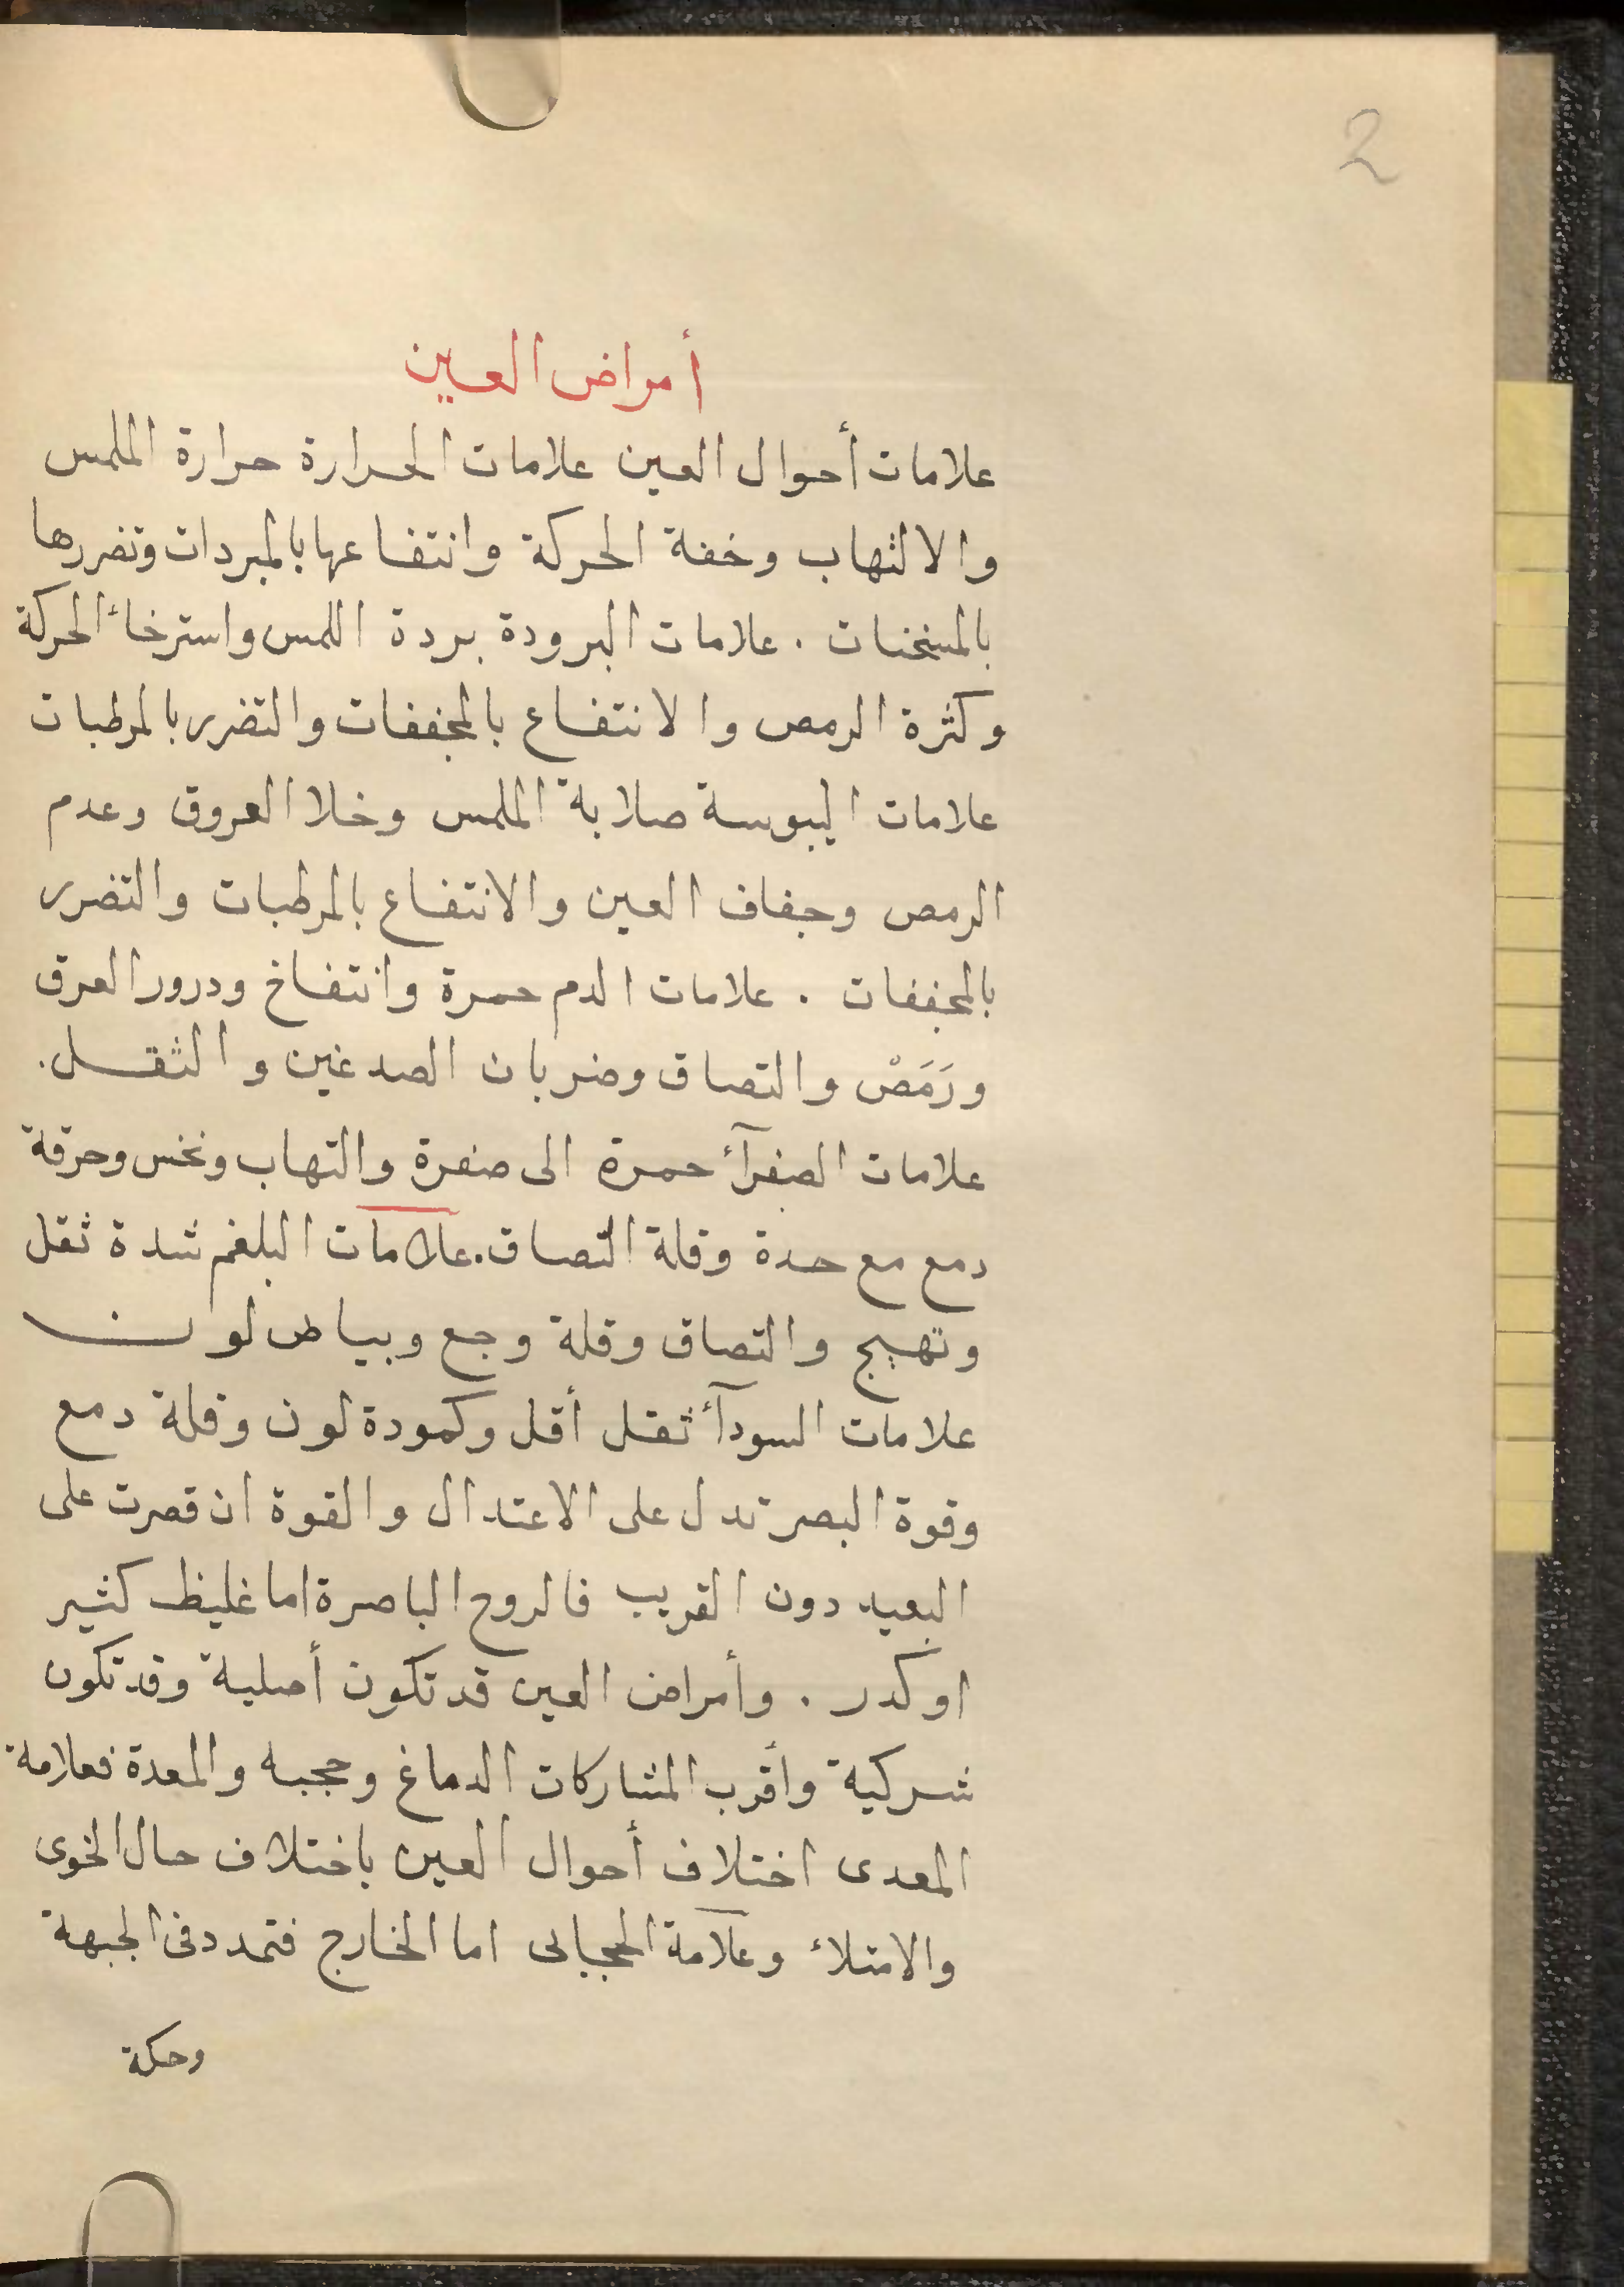 2
أمراض العين
علامات أحوال العين علامات الحرارة حرارة الملمس
والالتهاب وخفة الحركة وانتفاعها بالمبردات وتضررها
بالمسخنات . علامات البرودة بردة اللمس واسترخائ الحركة
وكثرة الرمص والانتفاع بالمجففات والتضرر بالمرطبات
علامات اليبوسة صلابة الملمس وخلا العروق وعدم
الرمص وجفاف العين والانتفاع بالمرطبات والتضرر
بالمجففات . علامات الدم حمرة وانتفاخ ودرور العرق
ورَمَصْ والتصاق وضربان الصدغين والثقل .
علامات الصفرآئ حمرة الى صفرة والتهاب ونخس وحرقة
دمع مع حدة وقلة التصاق . علامات البلغم شدة ثقل
وتهيج والتصاق وقلة وجع وبياض لون
علامات السودآئ ثقل أقل وكمودة لون وقلة دمع
وقوة البصر تدل على الاعتدال والقوة ان قصرت على
البعيد دون القريب فالروح الباصرة اما غليظ كثير
او كدر . وأمراض العين قد تكون أصلية وقد تكون
شركية وأقرب المشاركات الدماغ وحجبه والمعدة فعلامة
المعدى اختلاف أحوال العين باختلاف حال الخوى
والامتلائ وعلامة الحجابى اما الخارج فتمدد فى الجبهة
وحكة